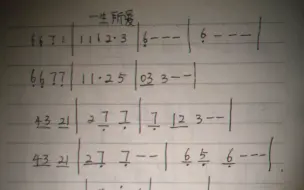 一生所爱
6 6 7 1 | 1 1 6 2 · 3 | 6 - - - | 6 - - - |
6 6 7 7 | 1 1 · 2 5 | 0 3 3 - - |
4 3 2 1 | 2 7 7 | 7 1 2 3 - - |
4 3 2 1 | 2 7 7 - - | 6 5 6 - - - |